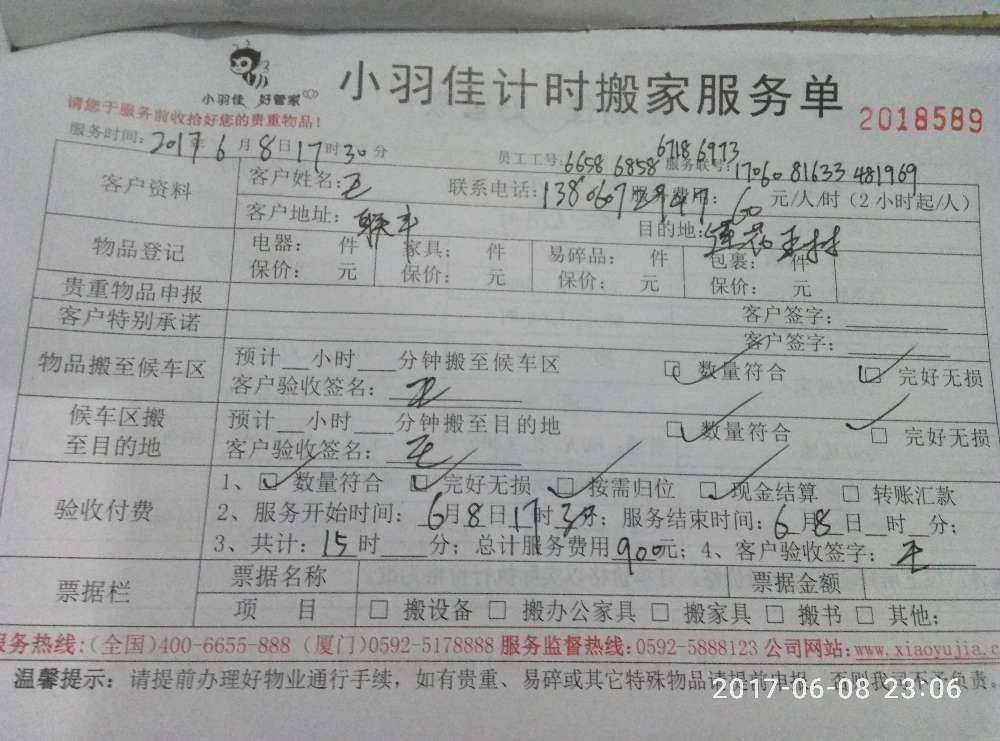 小羽佳 好管家
小羽佳计时搬家服务单
2018589
请您于服务前收拾好您的贵重物品！
服务时间：2017年6月8日17时30分
员工工号：6658 6858 6718 6973 服务联号：17060 81633 481969
客户资料 客户姓名：王 联系电话： 服务费用：60元/人/时（2小时起/人）
客户地址： 目的地：
物品登记 电器： 件 家具： 件 易碎品： 件 包裹： 件
保价： 元 保价： 元 保价： 元 保价： 元
贵重物品申报 客户签字：
客户特别承诺 客户签字：
物品搬至候车区 预计__小时___分钟搬至候车区 数量符合 完好无损
客户验收签名：王
候车区搬至目的地 预计__小时___分钟搬至目的地 数量符合 完好无损
客户验收签名：王
验收付费 1、数量符合 完好无损 按需归位 现金结算 转账汇款
2、服务开始时间：6月8日17时3分；服务结束时间：6月8日__时__分；
3、共计：15时___分；总计服务费用900元；4、客户验收签字：王
票据栏 票据名称 票据金额
项 目 搬设备 搬办公家具 搬家具 搬书 其他：
服务热线：(全国)400-6655-888 (厦门)0592-5178888 服务监督热线：0592-5888123 公司网站：www.xiaoyujia.c
温馨提示：请提前办理好物业通行手续，如有贵重、易碎或其它特殊物品请提前申报，否则我司不予负责。
2017-06-08 23:06